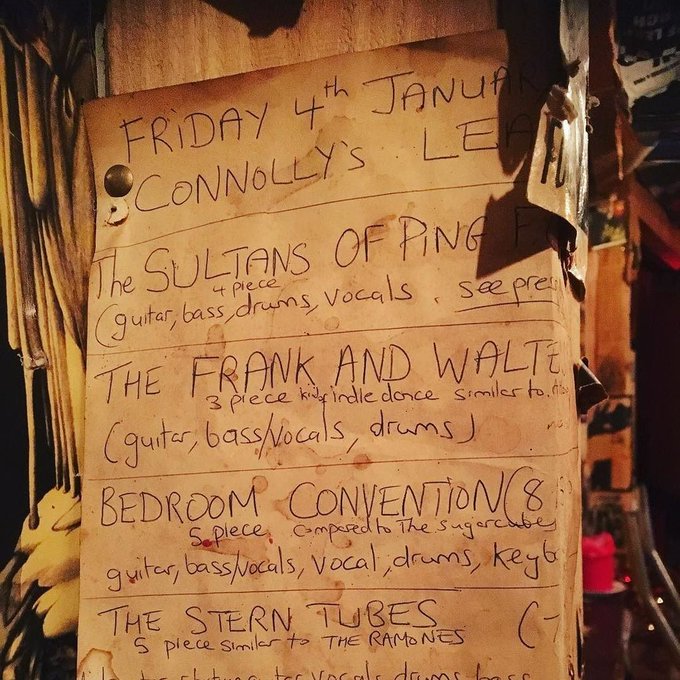 FRIDAY 4th JANUAR
CONNOLLY'S LEA
The SULTANS OF PING F
4 piece
(guitar, bass, drums, vocals. see pre
THE FRANK AND WALTE
3 piece indie dance similar to
(guitar, bass/vocals, drums)
BEDROOM CONVENTION (8
5 piece, compared to The sugarcubes
guitar, bass/vocals, vocal, drums, keyb
THE STERN TUBES (-
5 piece similar to THE RAMONES
vocals drums bass